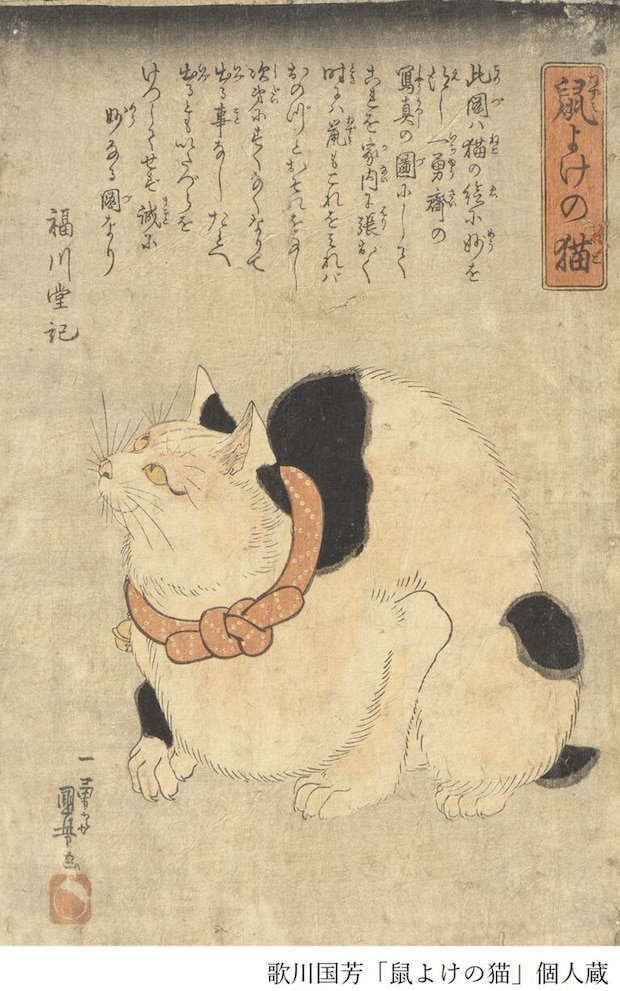 鼠よけの猫
此圖ハ猫の絵に妙を
得し一勇齋の
寫真の圖にして
これを家内に張おく
時ハ鼠もこれをみれバ
おのづとおそれをなし
次第にすくなくなりて
出る事なしたとへ
出るともいたづらを
けつしてせず誠に
妙なる圖なり
福川堂記
一勇斎
國芳画
歌川国芳「鼠よけの猫」個人蔵